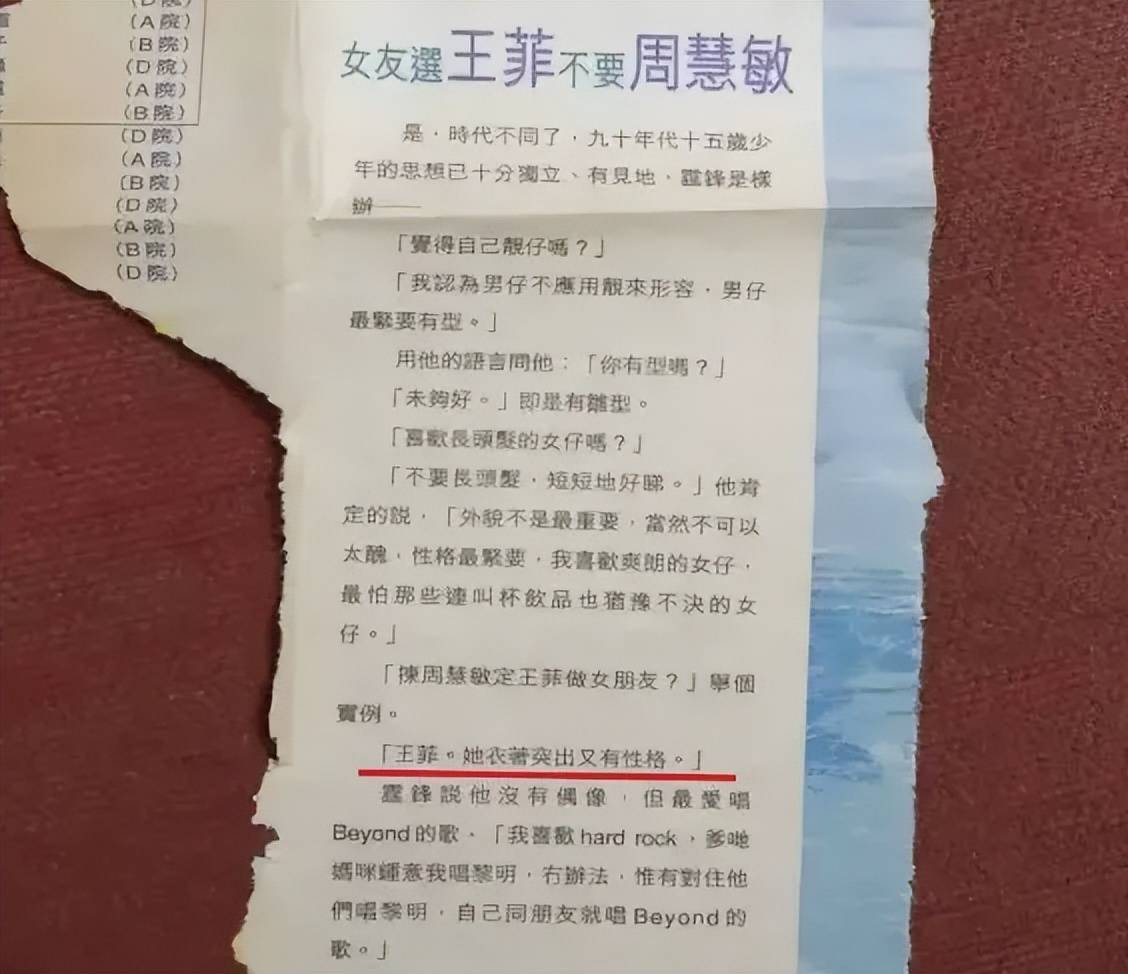 (D院)
(A院)
(B院)
(D院)
(A院)
(B院)
(D院)
(A院)
(B院)
(D院)
(A院)
(B院)
(D院)
女友選王菲不要周慧敏
是，時代不同了，九十年代十五歲少
年的思想已十分獨立、有見地，霆鋒是樣
辦——
「覺得自己靚仔嗎？」
「我認為男仔不應用靚來形容，男仔
最緊要有型。」
用他的語言問他：「你有型嗎？」
「未夠好。」即是有雛型。
「喜歡長頭髮的女仔嗎？」
「不要長頭髮，短短地好睇。」他肯
定的説，「外貌不是最重要，當然不可以
太醜，性格最緊要，我喜歡爽朗的女仔，
最怕那些連叫杯飲品也猶豫不決的女
仔。」
「揀周慧敏定王菲做女朋友？」舉個
實例。
「王菲。她衣著突出又有性格。」
霆鋒説他沒有偶像，但最愛唱
Beyond的歌。「我喜歡hard rock，爹哋
媽咪鍾意我唱黎明，冇辦法，惟有對住他
們唱黎明，自己同朋友就唱Beyond的
歌。」